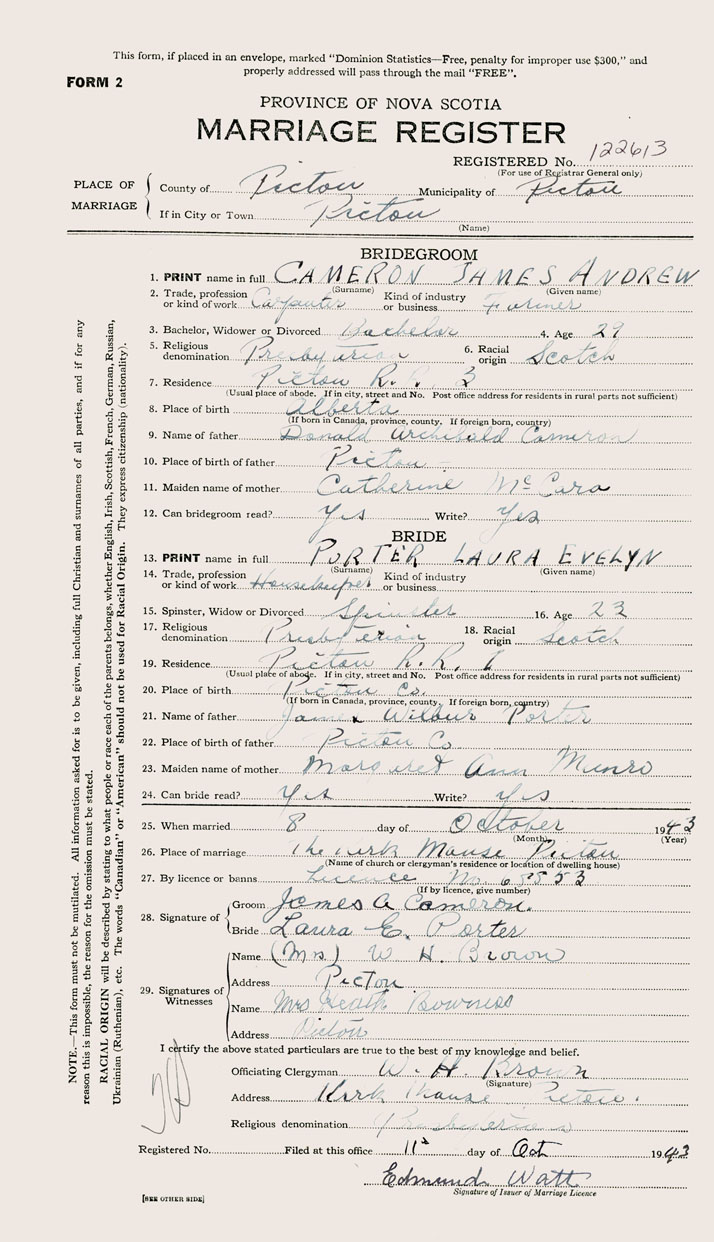 This form, if placed in an envelope, marked "Dominion Statistics—Free, penalty for improper use $300," and
properly addressed will pass through the mail "FREE".
FORM 2
PROVINCE OF NOVA SCOTIA
MARRIAGE REGISTER
REGISTERED No. 122613
(For use of Registrar General only)
PLACE OF MARRIAGE
County of Pictou Municipality of Pictou
If in City or Town Pictou
(Name)
BRIDEGROOM
1. PRINT name in full CAMERON JAMES ANDREW
(Surname) (Given name)
2. Trade, profession or kind of work Carpenter Kind of industry or business Farmer
3. Bachelor, Widower or Divorced Bachelor 4. Age 29
5. Religious denomination Presbyterian 6. Racial origin Scotch
7. Residence Pictou R.R. 3
(Usual place of abode. If in city, street and No. Post office address for residents in rural parts not sufficient)
8. Place of birth Alberta
(If born in Canada, province, county. If foreign born, country)
9. Name of father Donald Archibald Cameron
10. Place of birth of father Pictou
11. Maiden name of mother Catherine McCara
12. Can bridegroom read? Yes Write? Yes
BRIDE
13. PRINT name in full PORTER LAURA EVELYN
(Surname) (Given name)
14. Trade, profession or kind of work Housekeeper Kind of industry or business
15. Spinster, Widow or Divorced Spinster 16. Age 23
17. Religious denomination Presbyterian 18. Racial origin Scotch
19. Residence Pictou R.R. 1
(Usual place of abode. If in city, street and No. Post office address for residents in rural parts not sufficient)
20. Place of birth Pictou Co.
(If born in Canada, province, county. If foreign born, country)
21. Name of father James Wilbur Porter
22. Place of birth of father Pictou Co
23. Maiden name of mother Margaret Ann Munro
24. Can bride read? Yes Write? Yes
25. When married 8 day of October 1943
(Month) (Year)
26. Place of marriage The Kirk Manse Pictou
(Name of church or clergyman's residence or location of dwelling house)
27. By licence or banns Licence No.
(If by licence, give number)
28. Signature of
Groom James A Cameron.
Bride Laura E. Porter
29. Signatures of Witnesses
Name (Mrs) W H Brown
Address Pictou
Name Mrs Heath Bowness
Address Pictou
I certify the above stated particulars are true to the best of my knowledge and belief.
Officiating Clergyman W. H. Brown
(Signature)
Address Kirk Manse Pictou.
Religious denomination Presbyterian
Registered No. Filed at this office 11 day of Oct 1943
Edmund Watt
Signature of Issuer of Marriage Licence
[SEE OTHER SIDE]
NOTE.—This form must not be mutilated. All information asked for is to be given, including full Christian and surnames of all parties, and if for any
reason this is impossible, the reason for the omission must be stated.
RACIAL ORIGIN will be described by stating to what people or race each of the parents belongs, whether English, Irish, Scottish, French, German, Russian,
Ukrainian (Ruthenian), etc. The words "Canadian" or "American" should not be used for Racial Origin. They express citizenship (nationality).